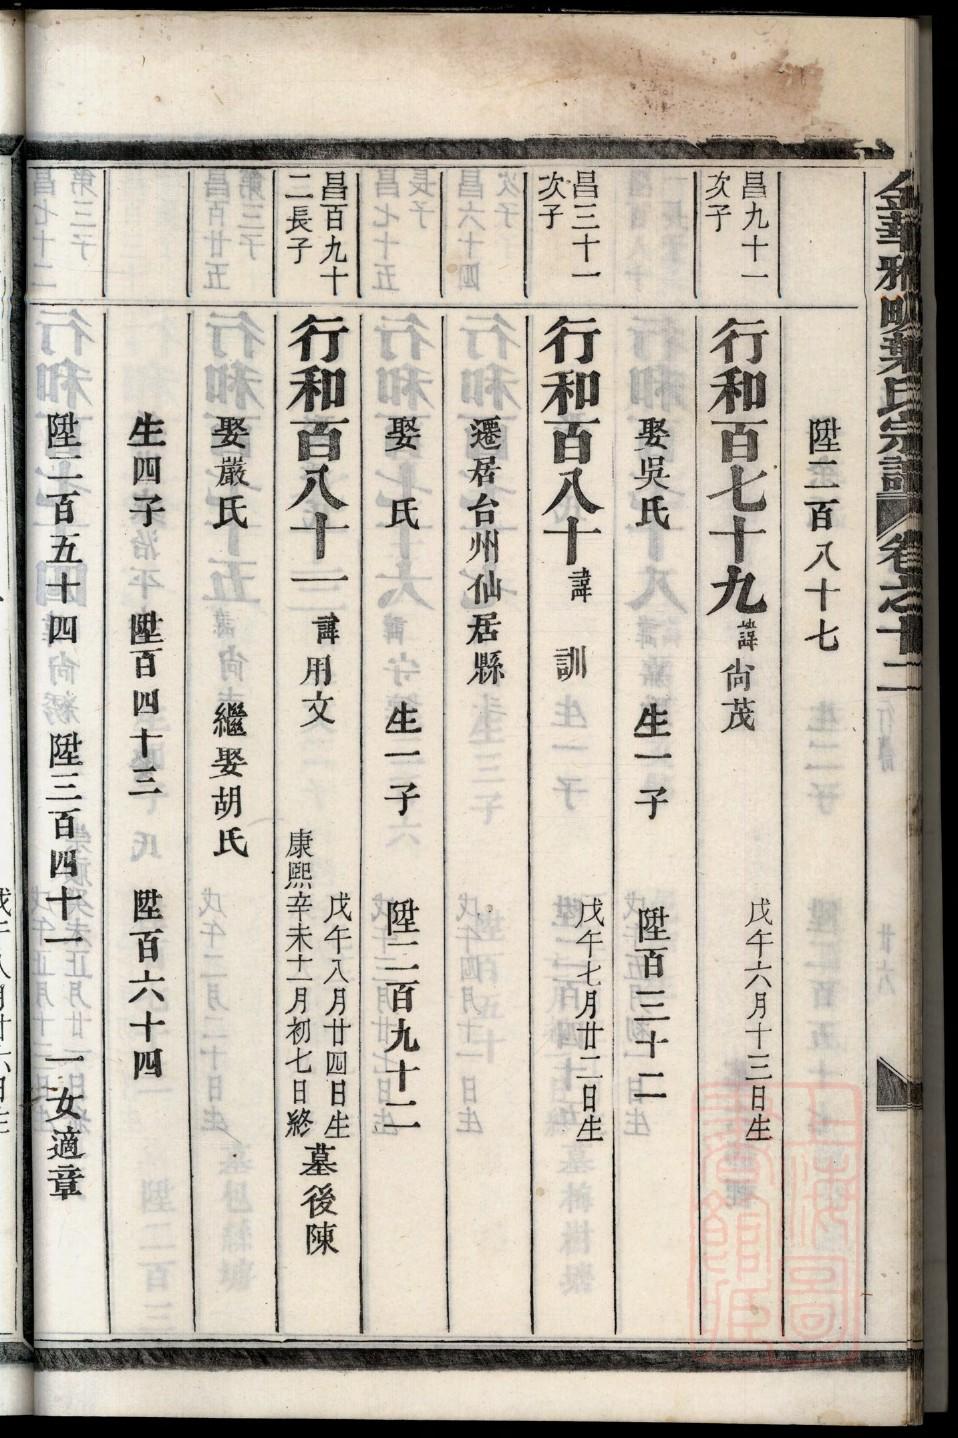 金華雅畈葉氏宗譜 卷之十二
陞二百八十七
昌九十一
次子
行和百七十九 諱尙茂 戊午六月十三日生
娶吳氏 生一子 陞百三十二
昌三十一
次子
行和百八十 諱 訓 戊午七月廿二日生
遷居台州仙居縣
娶 氏 生一子 陞二百九十二
昌百九十
二長子
行和百八十一 諱用文 戊午八月廿四日生
康熙辛未十一月初七日終
墓後陳
娶嚴氏 繼娶胡氏
生四子 陞百四十三 陞百六十四
陞二百五十四 陞三百四十一 一女適章